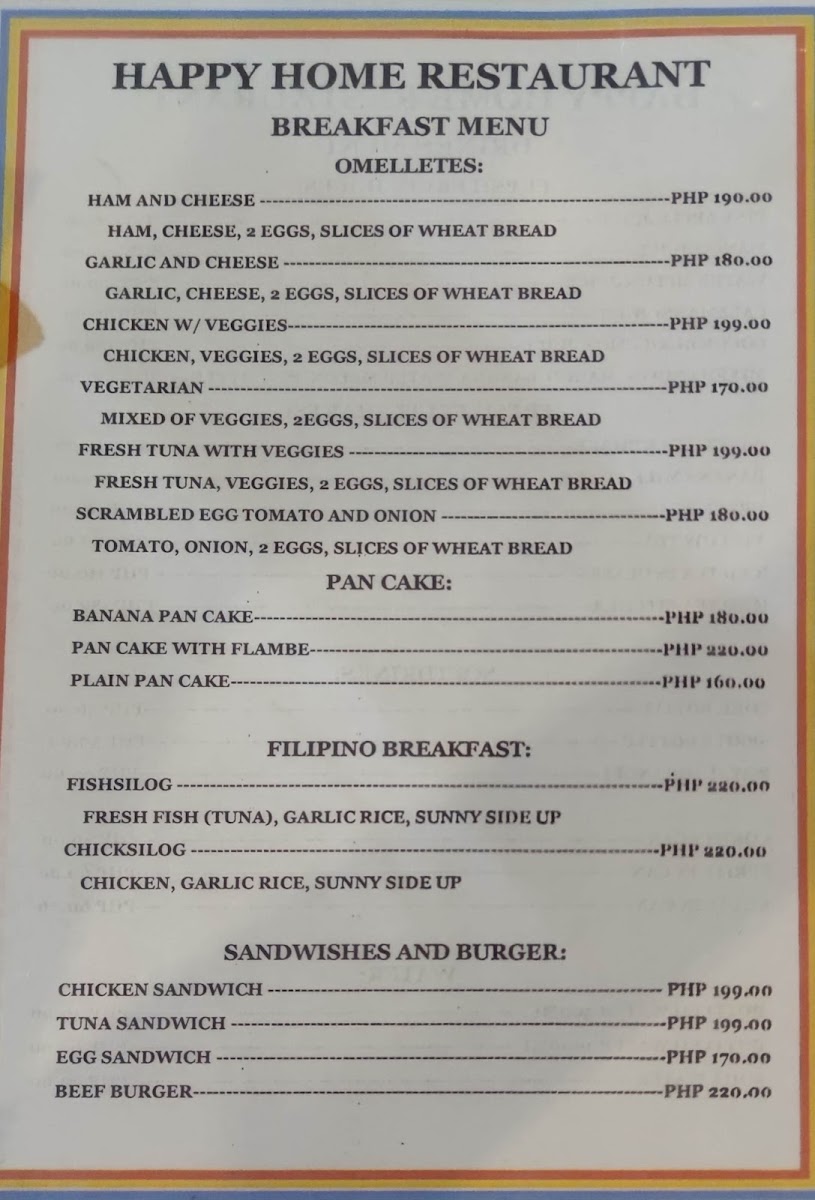 HAPPY HOME RESTAURANT
BREAKFAST MENU
OMELLETES:
HAM AND CHEESE -------------------------------------------------------------PHP 190.00
HAM, CHEESE, 2 EGGS, SLICES OF WHEAT BREAD
GARLIC AND CHEESE ---------------------------------------------------------PHP 180.00
GARLIC, CHEESE, 2 EGGS, SLICES OF WHEAT BREAD
CHICKEN W/ VEGGIES--------------------------------------------------------PHP 199.00
CHICKEN, VEGGIES, 2 EGGS, SLICES OF WHEAT BREAD
VEGETARIAN --------------------------------------------------------------------PHP 170.00
MIXED OF VEGGIES, 2EGGS, SLICES OF WHEAT BREAD
FRESH TUNA WITH VEGGIES -----------------------------------------------PHP 199.00
FRESH TUNA, VEGGIES, 2 EGGS, SLICES OF WHEAT BREAD
SCRAMBLED EGG TOMATO AND ONION ---------------------------------PHP 180.00
TOMATO, ONION, 2 EGGS, SLICES OF WHEAT BREAD
PAN CAKE:
BANANA PAN CAKE-------------------------------------------------------------PHP 180.00
PAN CAKE WITH FLAMBE----------------------------------------------------PHP 220.00
PLAIN PAN CAKE----------------------------------------------------------------PHP 160.00
FILIPINO BREAKFAST:
FISHSILOG ------------------------------------------------------------------------PHP 220.00
FRESH FISH (TUNA), GARLIC RICE, SUNNY SIDE UP
CHICKSILOG ---------------------------------------------------------------------PHP 220.00
CHICKEN, GARLIC RICE, SUNNY SIDE UP
SANDWISHES AND BURGER:
CHICKEN SANDWICH ---------------------------------------------------------- PHP 199.00
TUNA SANDWICH ---------------------------------------------------------------PHP 199.00
EGG SANDWICH -----------------------------------------------------------------PHP 170.00
BEEF BURGER--------------------------------------------------------------------PHP 220.00